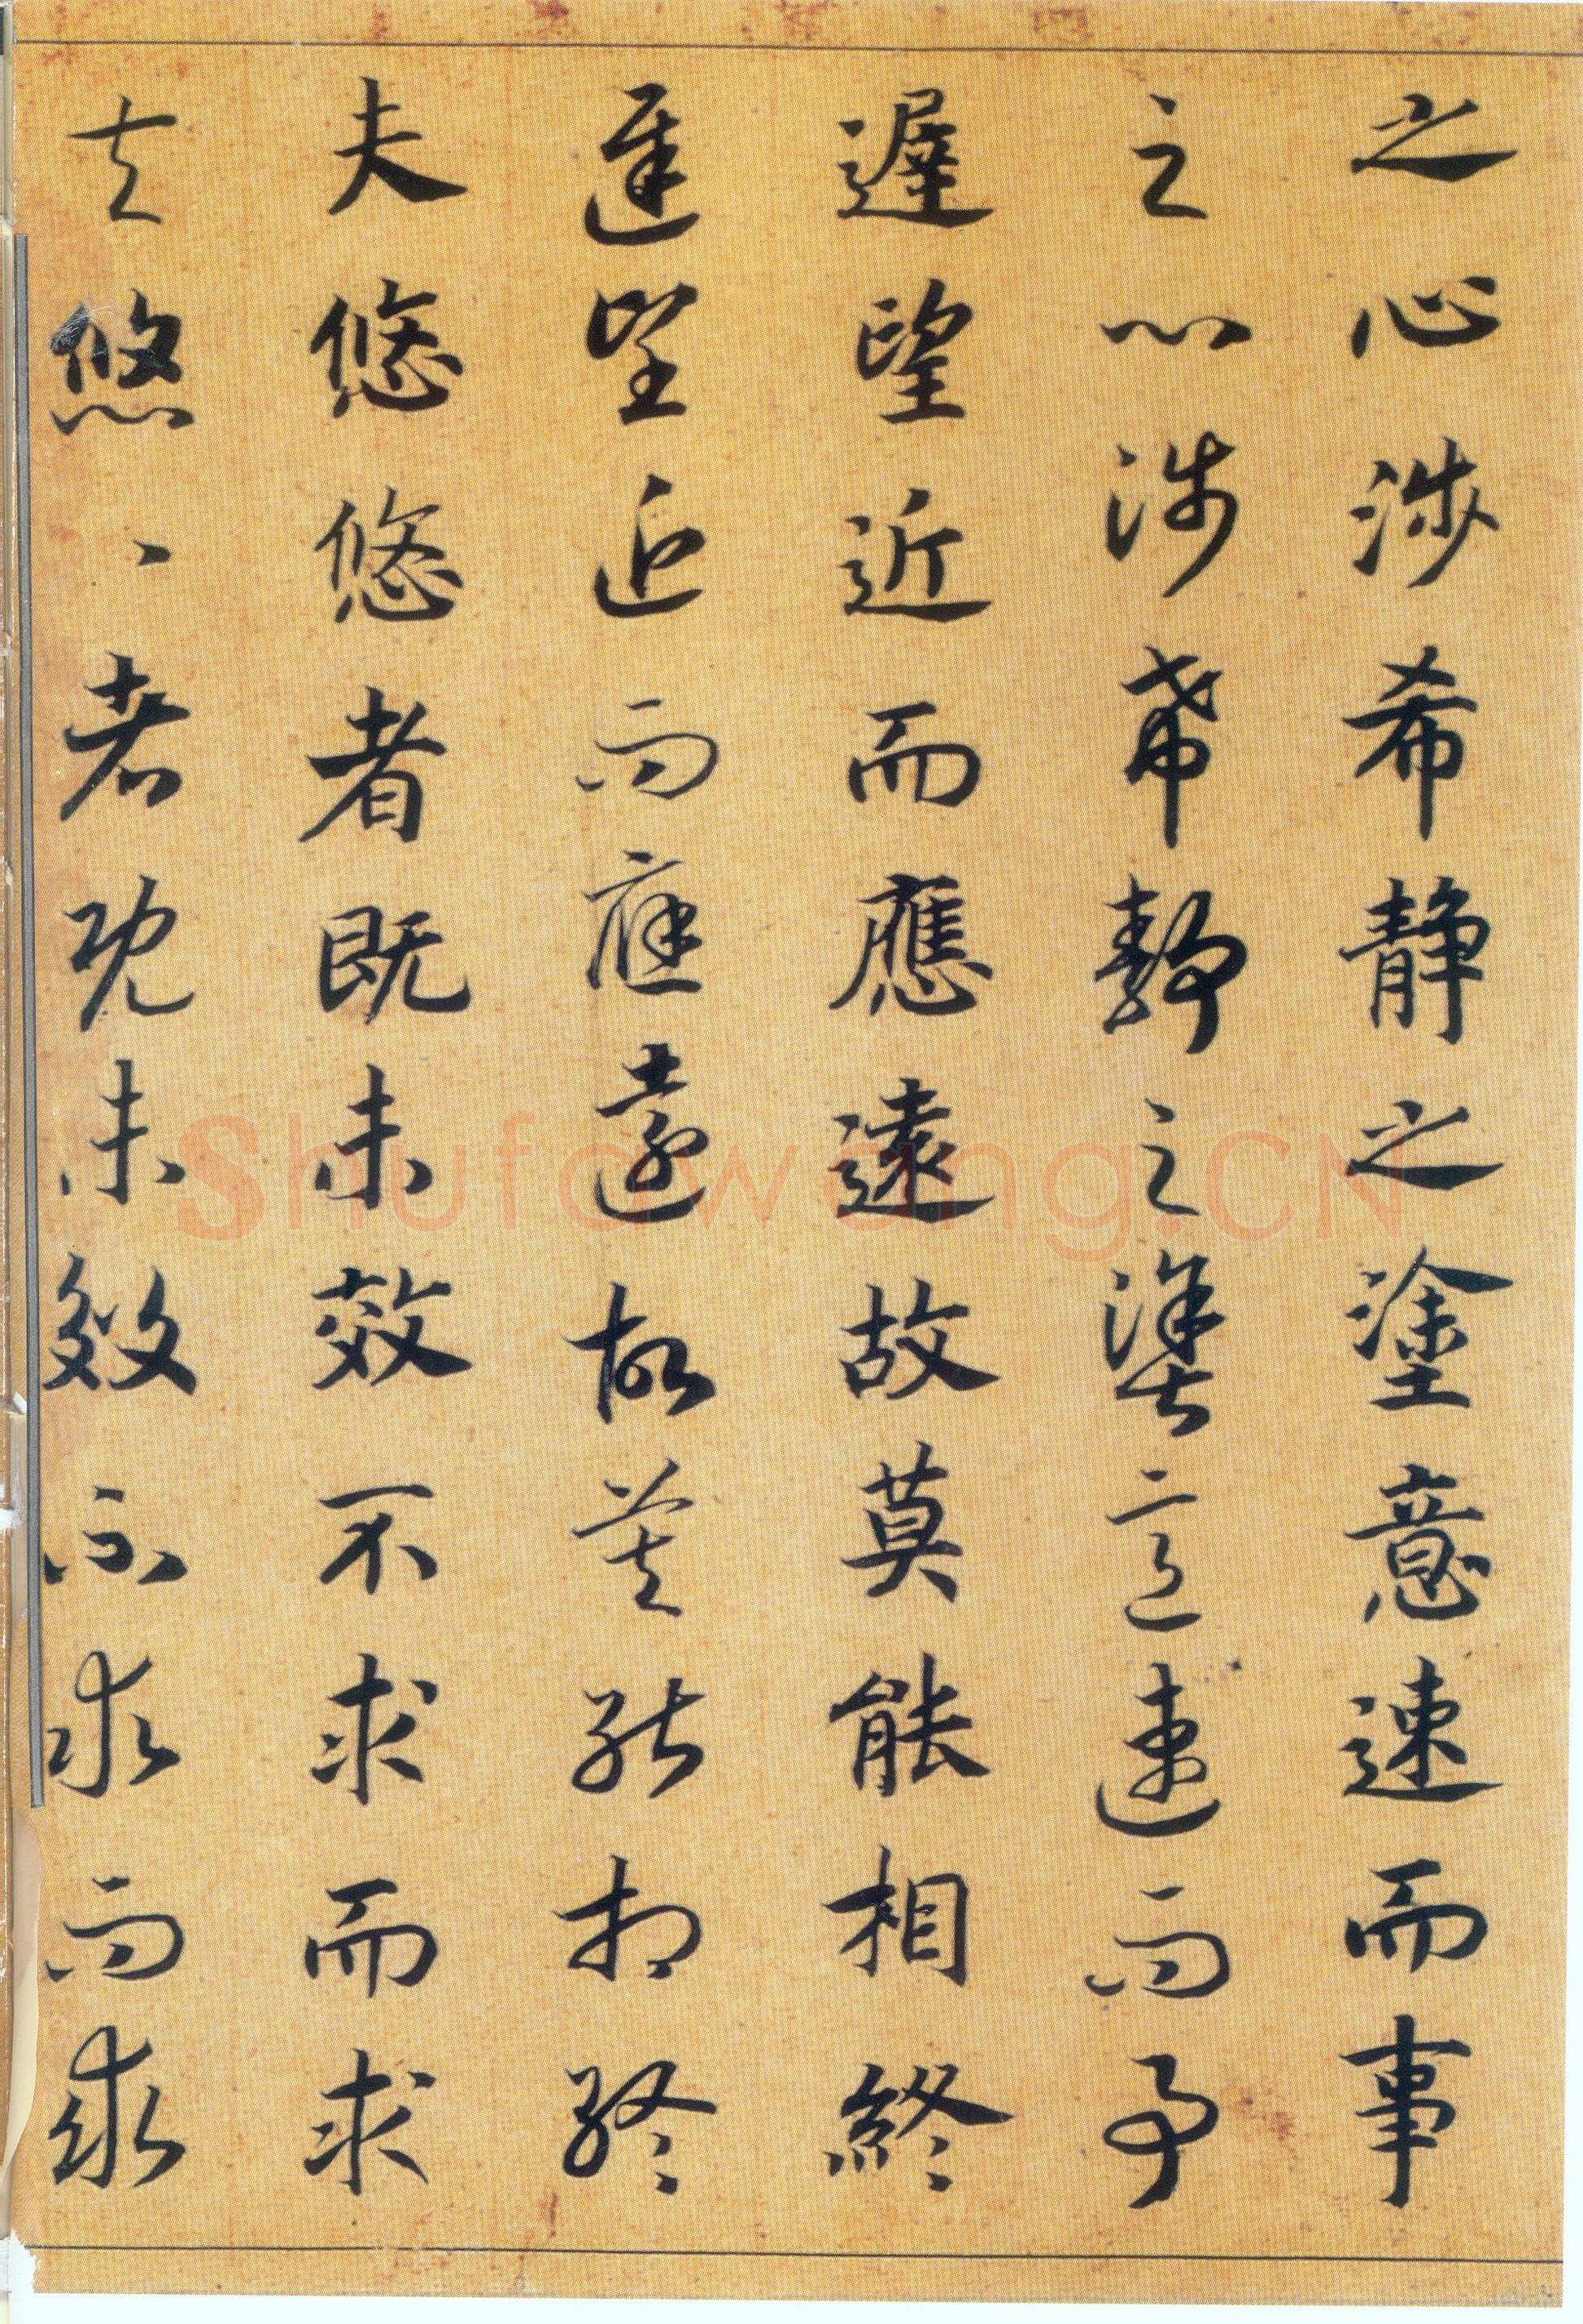 之心涉希静之塗意速而事
之心涉希靜之塗意速而事
遲望近而應遠故莫能相終
遲望近而應遠故莫能相終
夫悠悠者既未效不求而求
夫悠、者既未效不求而求
Shufawang.CN